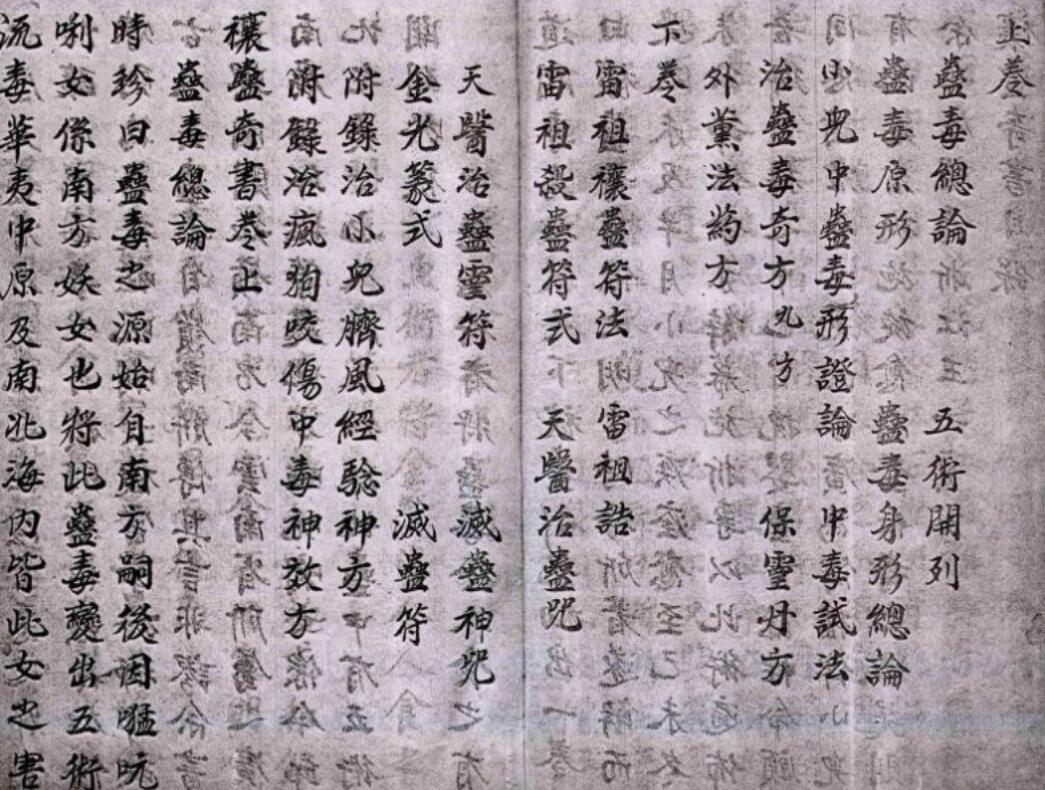 上卷
蠱毒總論 五術開列
蠱毒原形 蠱毒身形總論
小兒中蠱毒形證論 中毒試法
治蠱毒奇方九方 保靈丹方
外薰法药方
下卷
雷祖禳蠱符法 雷祖誥
雷祖殺蠱符式 天醫治蠱咒
天醫治蠱靈符 滅蠱神咒
金光篆式 滅蠱符
附錄治小兒臍風經驗神方
附錄治瘋狗咬傷中毒神效方
禳蠱奇書卷上
蠱毒總論
時珍曰蠱毒之源始自南方嗣後因
唎女係南方妖女也將此蠱毒變出五術
流毒華夷中原及南北海內皆此女之害